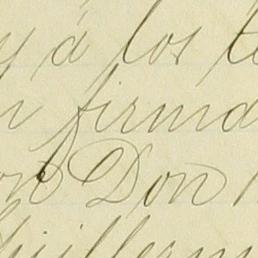 y á los te
n firma
on Don
Guillerm